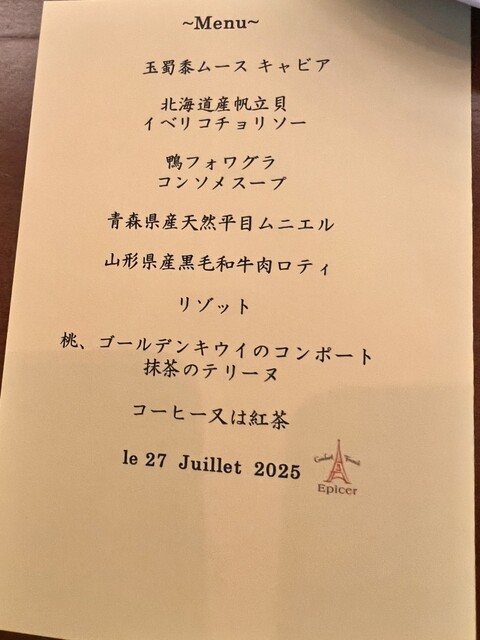 ~Menu~
玉蜀黍ムース キャビア
北海道産帆立貝
イベリコチョリソー
鴨フォワグラ
コンソメスープ
青森県産天然平目ムニエル
山形県産黒毛和牛肉ロティ
リゾット
桃、ゴールデンキウイのコンポート
抹茶のテリーヌ
コーヒー又は紅茶
le 27 Juillet 2025
Epicer